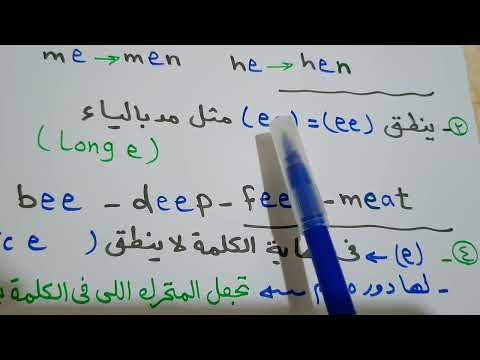 me → men he → hen
٢- ينطق (ee) = (e) مثل مد بالياء
(Long e)
bee - deep - fee - meat
٤- (e) ← فى الكلمة لا ينطق (c e)
- لها دور تجعل المتحرك اللى فى الكلمة